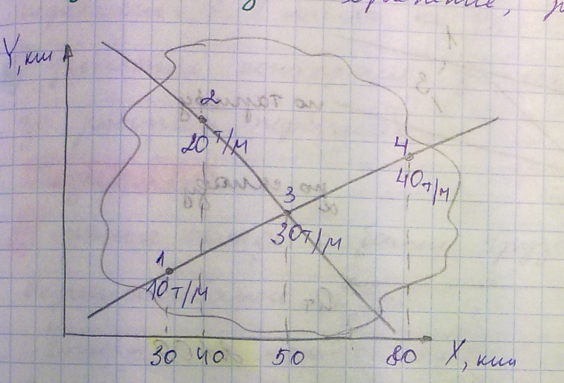 Y, км
2
20 т/м
4
40 т/м
3
30 т/м
1
10 т/м
30 40 50 80 X, км